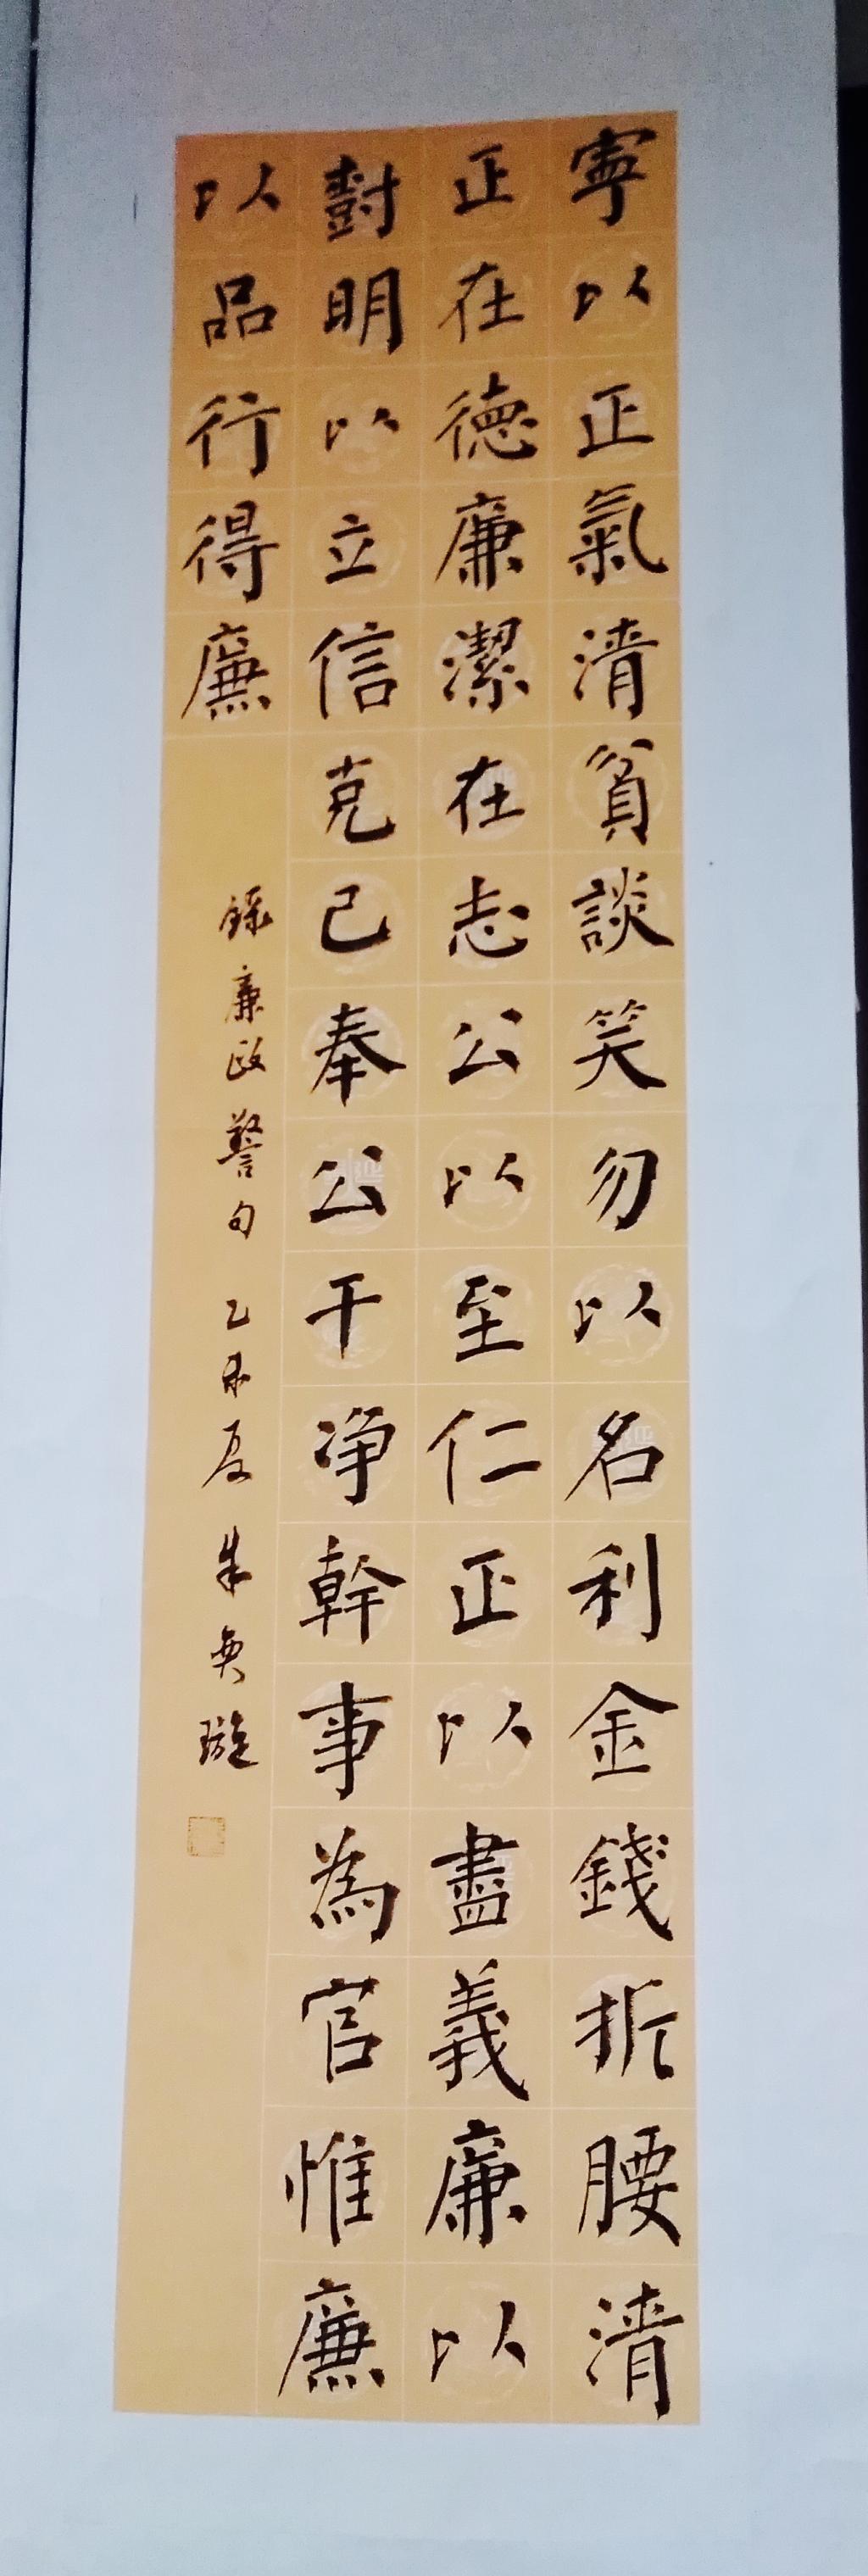 寧以正氣清貧談笑勿以名利金錢折腰清
正在德廉潔在志公以至仁正以盡義廉以
對明以立信克己奉公干净幹事為官惟廉
以品行得廉
錄廉政警句 乙未夏 朱奭璇